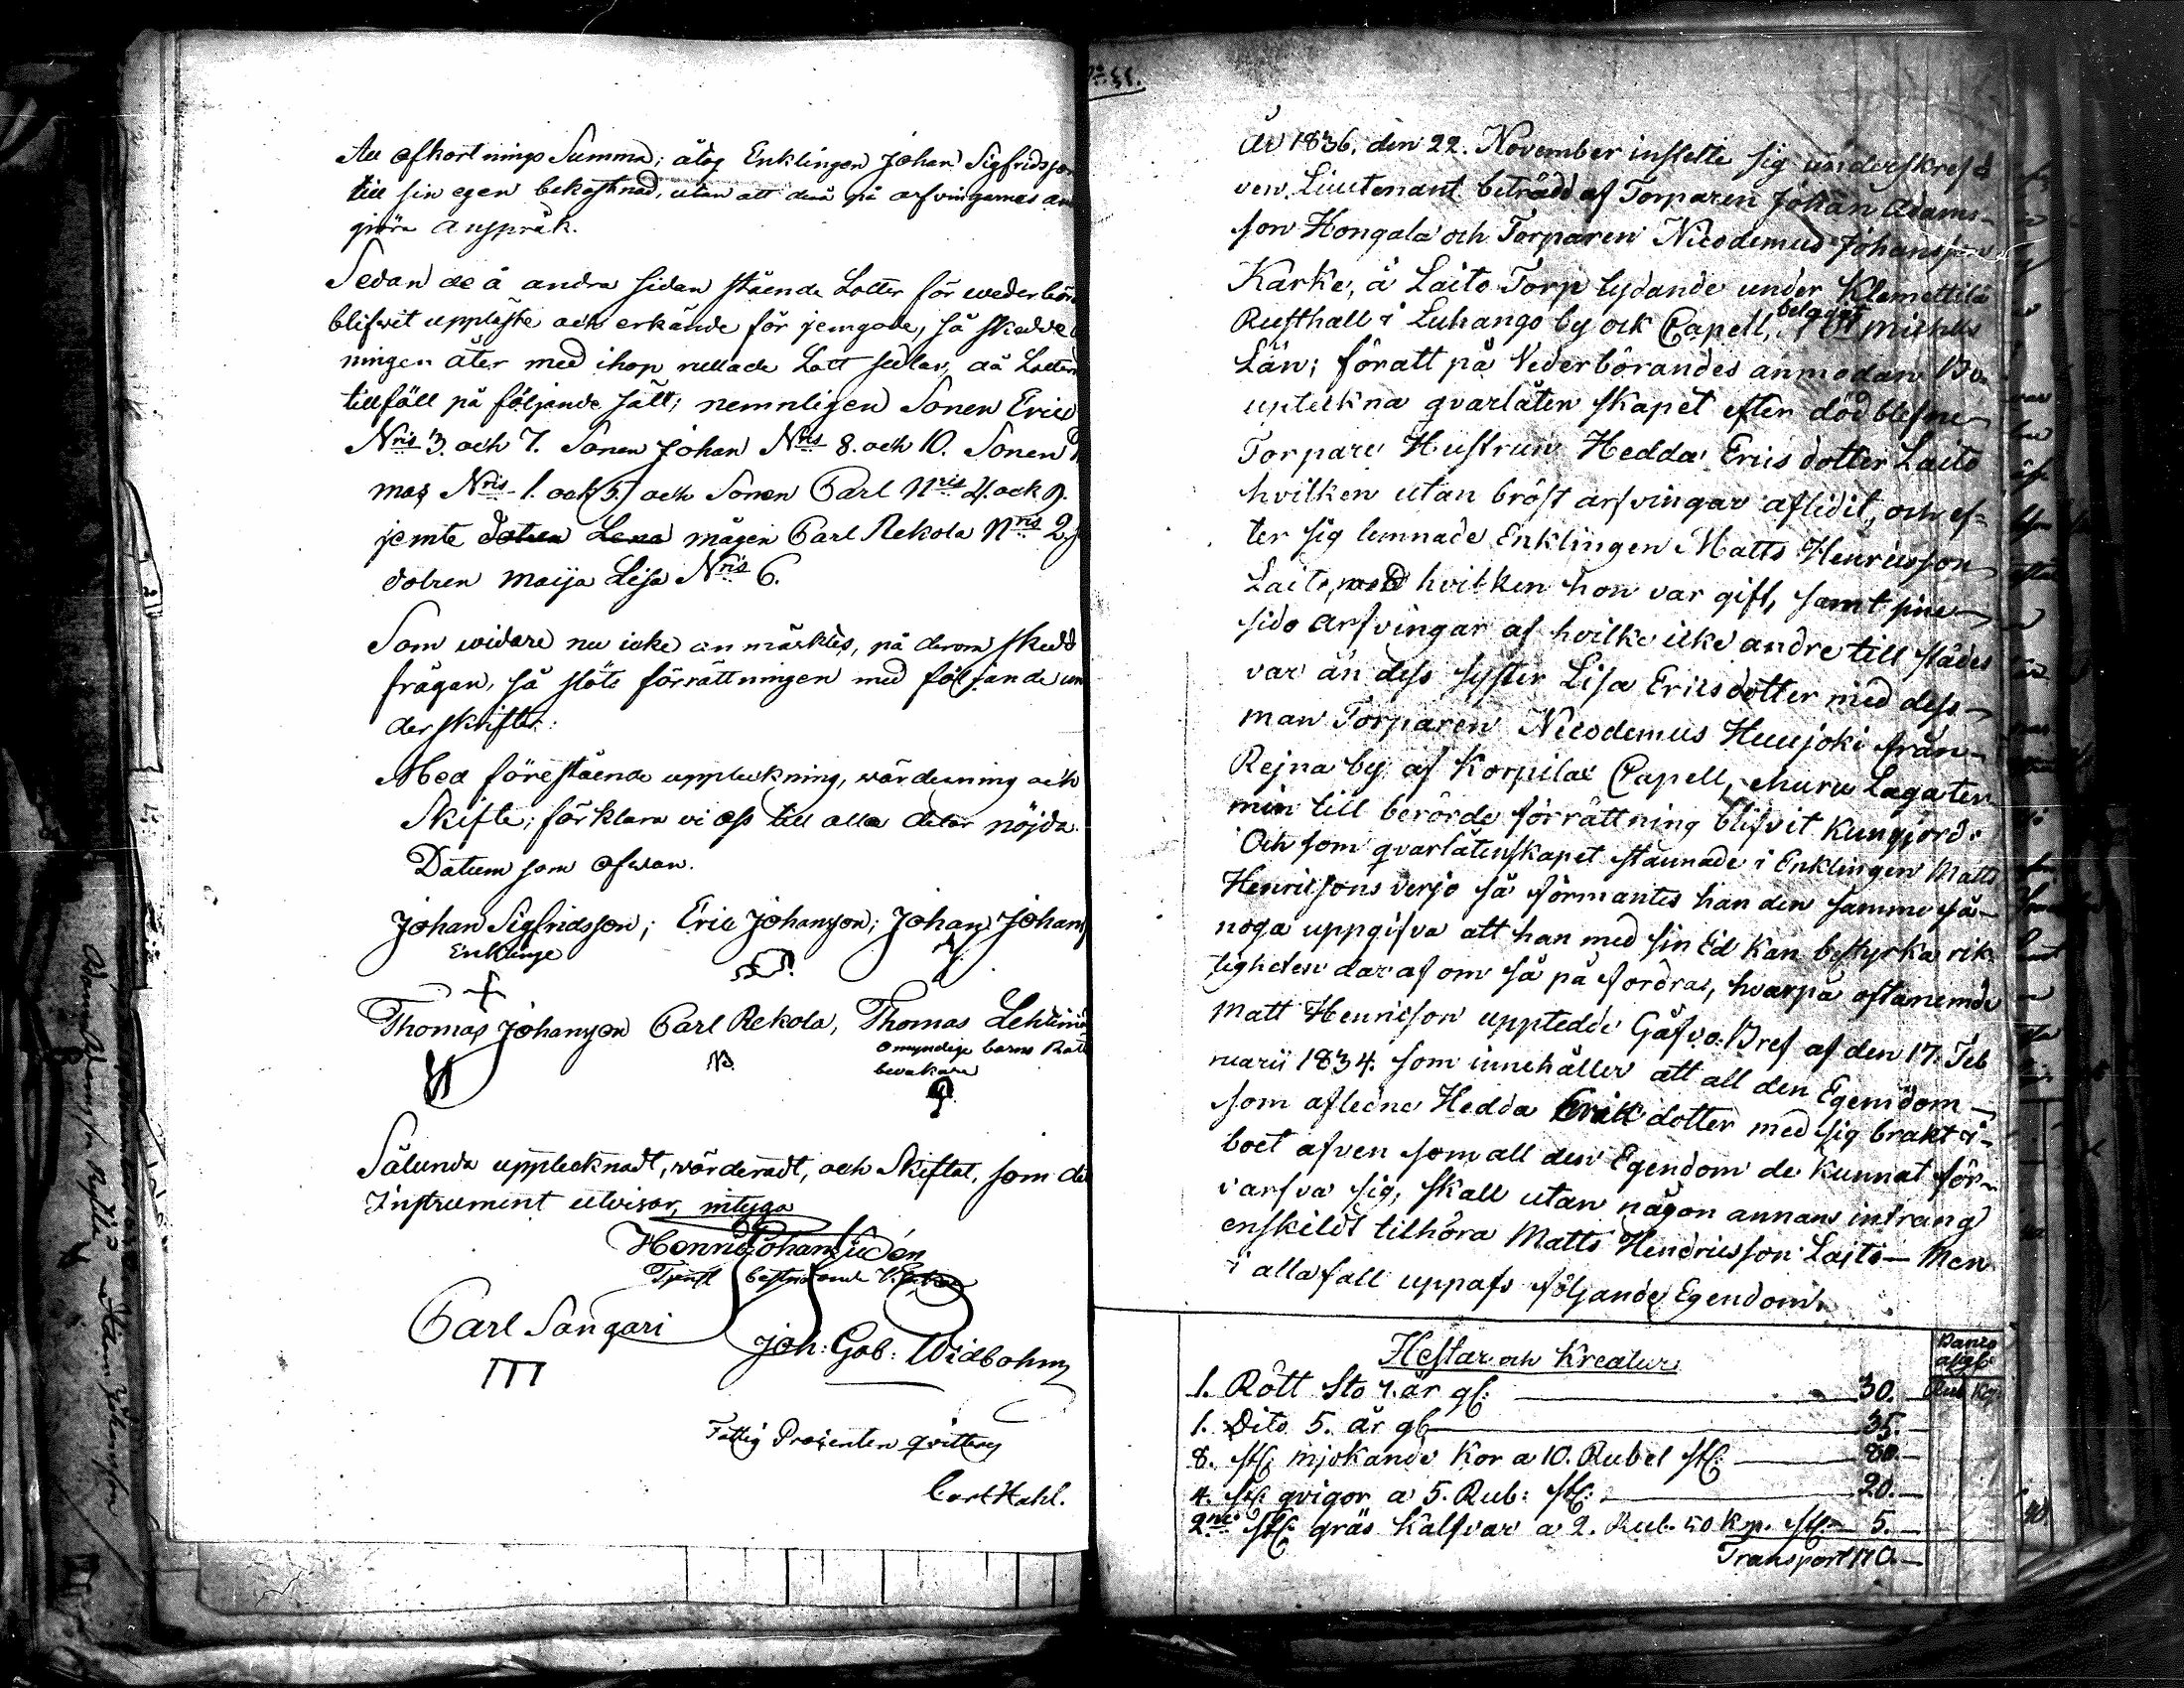 Au afkortnings Summa; åtog Enklingen Johan Sigfridsson
till sin egen bekostnad, utan att derå på arfvingarnes
giöra Anspråk.
Sedan de å andra sidan stående Lotter för wederbör
blifvit uppläste och erkände för jemgode, så skedde
ningen åter med ihop rullade Lott sedlar, då Lotter
tillföll på följande sätt; nemnligen Sonen Eric
Nris 3. och 7. Sonen Johan Nris 8. och 10. Sonen
mas Nris 1. och 5. och Sonen Carl Nris 4. och 9.
jemte dottren Lena mågen Carl Rekola Nris 2,
dotren Maija Lisa Nris 6.
Som widare nu icke anmärktes, på derom skedd
frågan, så slöts förrättningen med följande un
derskrifter:
Med förestående uppteckning, värdering och
Skifte; förklara vi oss till alla delar nöjda.
Datum som ofwan.
Johan Sigfridsson; Eric Johansson; Johan Johans
Enklinge
Thomas Johansson Carl Rekola, Thomas Lehtini
omyndige barns Rätt
bevakare
Sålunda upptecknadt, värderadt, och Skiftat, som de
Instrument utvisar, intyga
Henric Johan
Carl Sangari Joh: Gab: Widbohm
Fattig Procenten qvitteras
Carl Hahl.
År 1836. den 22. November instelte sig underskrefd
ven. Lieutenant beträdd af Torparen Johan Adams-
son Hongala och Torparen Nicodemus Johansson
Karke, å Laito Torp lydande under Klemettilä
Rusthall i Luhango by ock Capell, belägget i St Michels
Län; föratt på Vederbörandes anmodan Bo
upteckna qvarlåtenskapet efter död blefne
Torpare Hustrun Hedda Erics dotter Laito
hvilken utan bröst arfvingar aflidit, och ef-
ter sig lemnade Enklingen Matts Henricsson
Laito, med hvilken hon var gift, samt sine
sido Arfvingar af hvilke icke andre till städes
var än dess syster Lisa Ericsdotter med dess
man Torparen Nicodemus Huujoki från
Rejna by af Korpilax Capell, ehuru Laga ter
min till berörde förrättning blifvit kungjord.
Och som qvarlåtenskapet stannade i Enklingen Matts
Henricsons verjo så förmantes han den samme så
noga uppgifva att han med sin Ed kan bestyrka rik
tigheten daraf om så på fordras, hvarpå oftanemde
Matt Henricson upptedde Gåfvo: Bref af den 17. Feb
ruarii 1834. som innehåller att all den Egendom
som afledne Hedda Erik dotter med sig brakt i
boet afven som all den Egendom de kunnat för-
varfva sig, skall utan någon annans intrang
enskildt tilhöra Matts Hendricsson Laito- Men
i alla fall uppafs följande Egendom.
Hestar och Kreatur
Banco
assgt:
Rub Kop
1. Rött Sto 4. år gl: 30.
1. Dito 5. år gl 35.
8. st: mjokande Kor a 10. Rubel st: 80.
4. st: qvigor a 5. Rub: st: 20.
2ne st: gräs kalfvar a 2. Rub. 50 Kop. st: 5.
Transport 170.